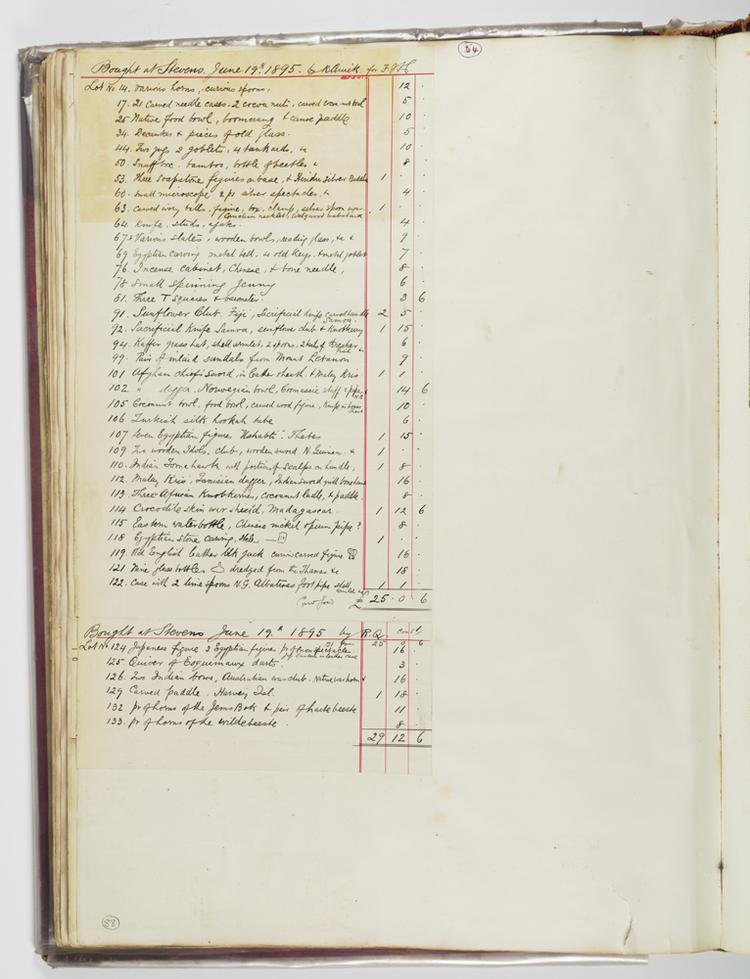 54
Bought at Stevens, June 19th 1895. by R. Quick for F.J.H.
Lot No 14. Various horns, curious spoons, 12 .
17. 21 Carved needle cases. 2 cocoa nuts, carved 5 .
25 Native food bowl, boomerang & canoe paddle 10 .
34. Decanter & pieces of old glass. 5 .
44. Two jugs 2 goblets, 4 tankards, &c 10 .
50. Snuff box. bamboo, bottle of beetles & 8 .
53. Three soapstone figures on base, & Hindu Silver Buddha 1 . .
60. Small microscope 2 prs silver spectacles, &c 4 .
63. Carved ivory balls, figure, box, clamp, silver spoon 1 . .
Cornelian necklet, Wedgwood
64. Knife, studs, agates. 4 .
67. Various slates, wooden bowls, reading glass, &c & 9 .
69. Egyptian carving metal bell, 4 old keys, & metal goblet 7 .
76. Incense cabinet, Chinese, & bone needle, 8 .
78 Small Spinning Jenny 6 .
81. Three T squares & barometer. 3 6
91. Sunflower Club. Fiji, Sacrificial Knife carved handle 2 5 .
Samoa.
92. Sacrificial Knife Samoa, sunflower club & Knobkerry 1 15 .
94. Kaffir grass hat, shell armlet, 2 spoons, 6 .
99. Pair of inlaid sandals from Mount Lebanon 9 .
101 Afghan chief's sword, in leather sheath & Malay Kris 1 1 .
102 " dagger, Norwegian bowl, Coomassie stuff 2 pipes 14 6
105 Cocoanut bowl, food bowl, carved wood figure, Knife in 10 .
106 Turkish silk hookah tube 6 .
107 Seven Egyptian figures, "Ushabti". Thebes 1 15 .
109 Two wooden Idols, club, wooden sword N. Guinea & 1 . .
110. Indian Tomahawk with portion of scalps on handle, 1 8 .
112. Malay Kris, Tunisian dagger, Indian sword with bone hand 16 .
113. Three African Knobkerries, cocoanut ladle, & paddle. 8 .
114 Crocodile skin war shield, Madagascar. 1 12 6
115 Eastern water bottle, Chinese nickel opium pipe? 8 .
118 Egyptian stone carving, 1 . .
119. Old English leather Blk jack curious carved figure 16 .
121 Nine glass bottles dredged from the Thames &c 18 .
122. Case with 2 lime spoons N.G. Albatross foot pipe, shell 1 1 .
Card ford £ 25 . 0 . 6
Bought at Stevens June 19th 1895 by R.Q. contd
25 0 6
Lot No 124 Japanese figure 3 Egyptian figures pr of iron spectacles 16 .
125. Quiver of Esquimaux darts. 3 .
126. Two Indian bows, Australian war club. Native war horn & 16 .
129 Carved paddle. Hervey Isl. 1 18 .
132 pr of horns of the Jems Bok & pair of hartebeeste 11 .
133. pr of horns of the wildebeeste. 8 .
29 12 6
88